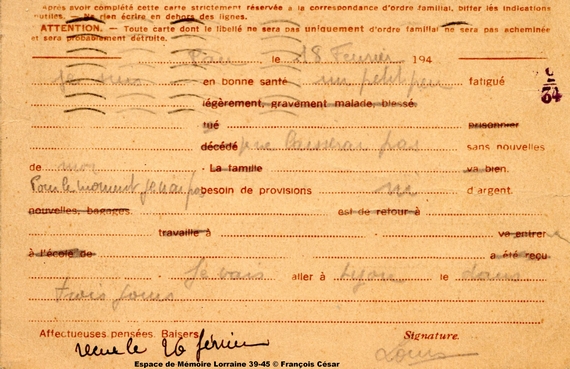 Après avoir complété cette carte strictement réservée à la correspondance d'ordre familial, biffer les indications
inutiles. — Ne rien écrire en dehors des lignes.
ATTENTION. — Toute carte dont le libellé ne sera pas uniquement d'ordre familial ne sera pas acheminée
et sera probablement détruite.
le 18 Février 194
Je suis en bonne santé un petit peu fatigué
légèrement, gravement malade, blessé.
tué prisonnier
décédé ne laisserai pas sans nouvelles
de moi La famille va bien.
Pour le moment je n'ai pas besoin de provisions ni d'argent.
nouvelles, bagages est de retour à
travaille à va entrer
à l'école de a été reçu
Je vais aller à Lyon le dans
trois jours
Affectueuses pensées. Baisers. Signature.
reçue le 26 février
Louis
64
Espace de Mémoire Lorraine 39-45 © François César